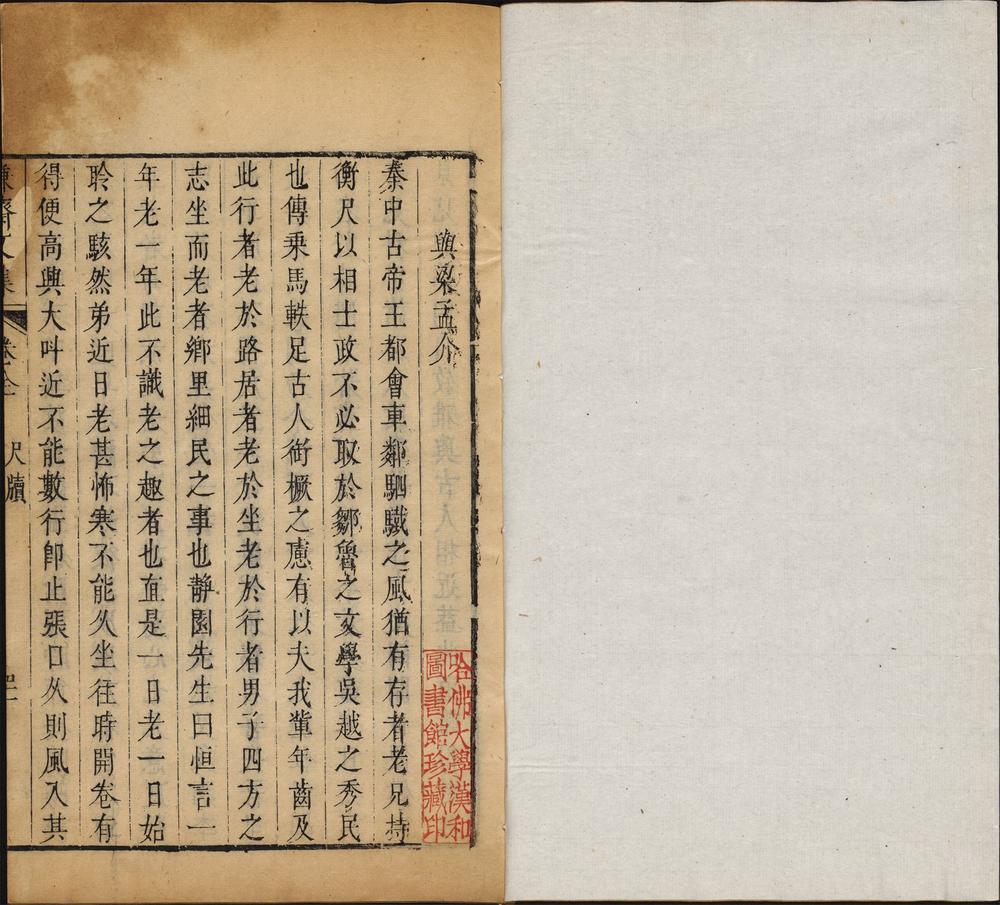 與梁孟介
秦中古帝王都會車鄰駟驖之風猶有存者老兄持
衡尺以相士政不必取於鄒魯之文學吳越之秀民
也傳乗馬軼足古人銜橛之慮有以夫我輩年齒及
此行者老於路居者老於坐老於行者男子四方之
志坐而老者鄉里細民之事也靜園先生曰恒言一
年老一年此不識老之趣者也直是一日老一日始
聆之駭然弟近日老甚怖寒不能久坐往時開卷有
得便高興大呌近不能數行卽止張口久則風入其
齋文集
卷全
尺牘
哈佛大學漢和
圖書館珍藏印